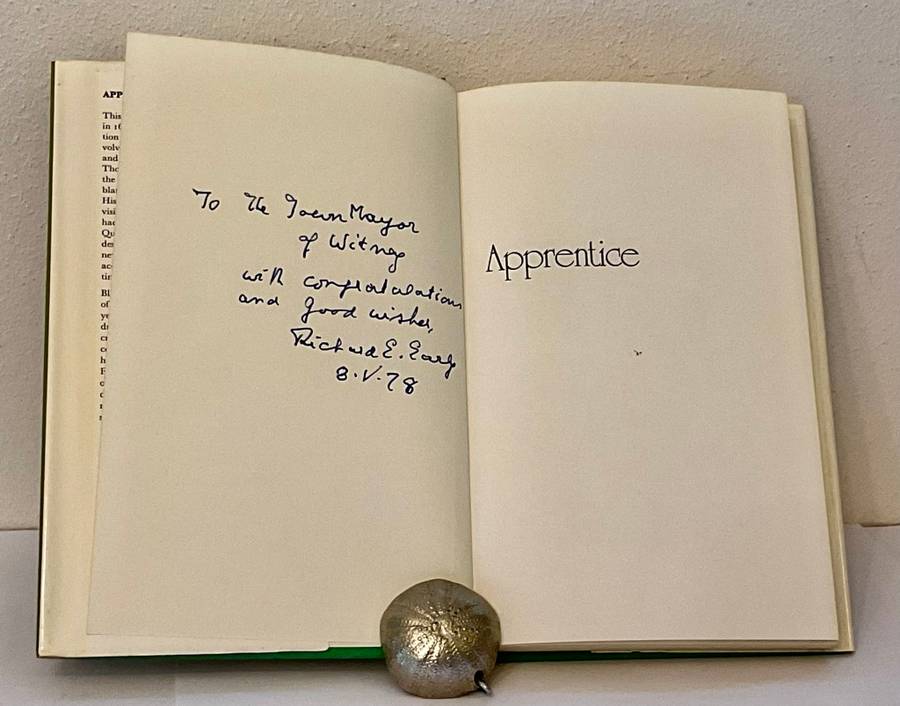 APP
This
in 16
tion
volv
and
The
the
bla
His
visi
had
Qu
de
ne
ac
tir
Bl
of
ye
d
c
c
h
F
c
To The Town Mayor
of Witney
with congratulations
and good wishes,
Richard E. Early
8.V.78
Apprentice